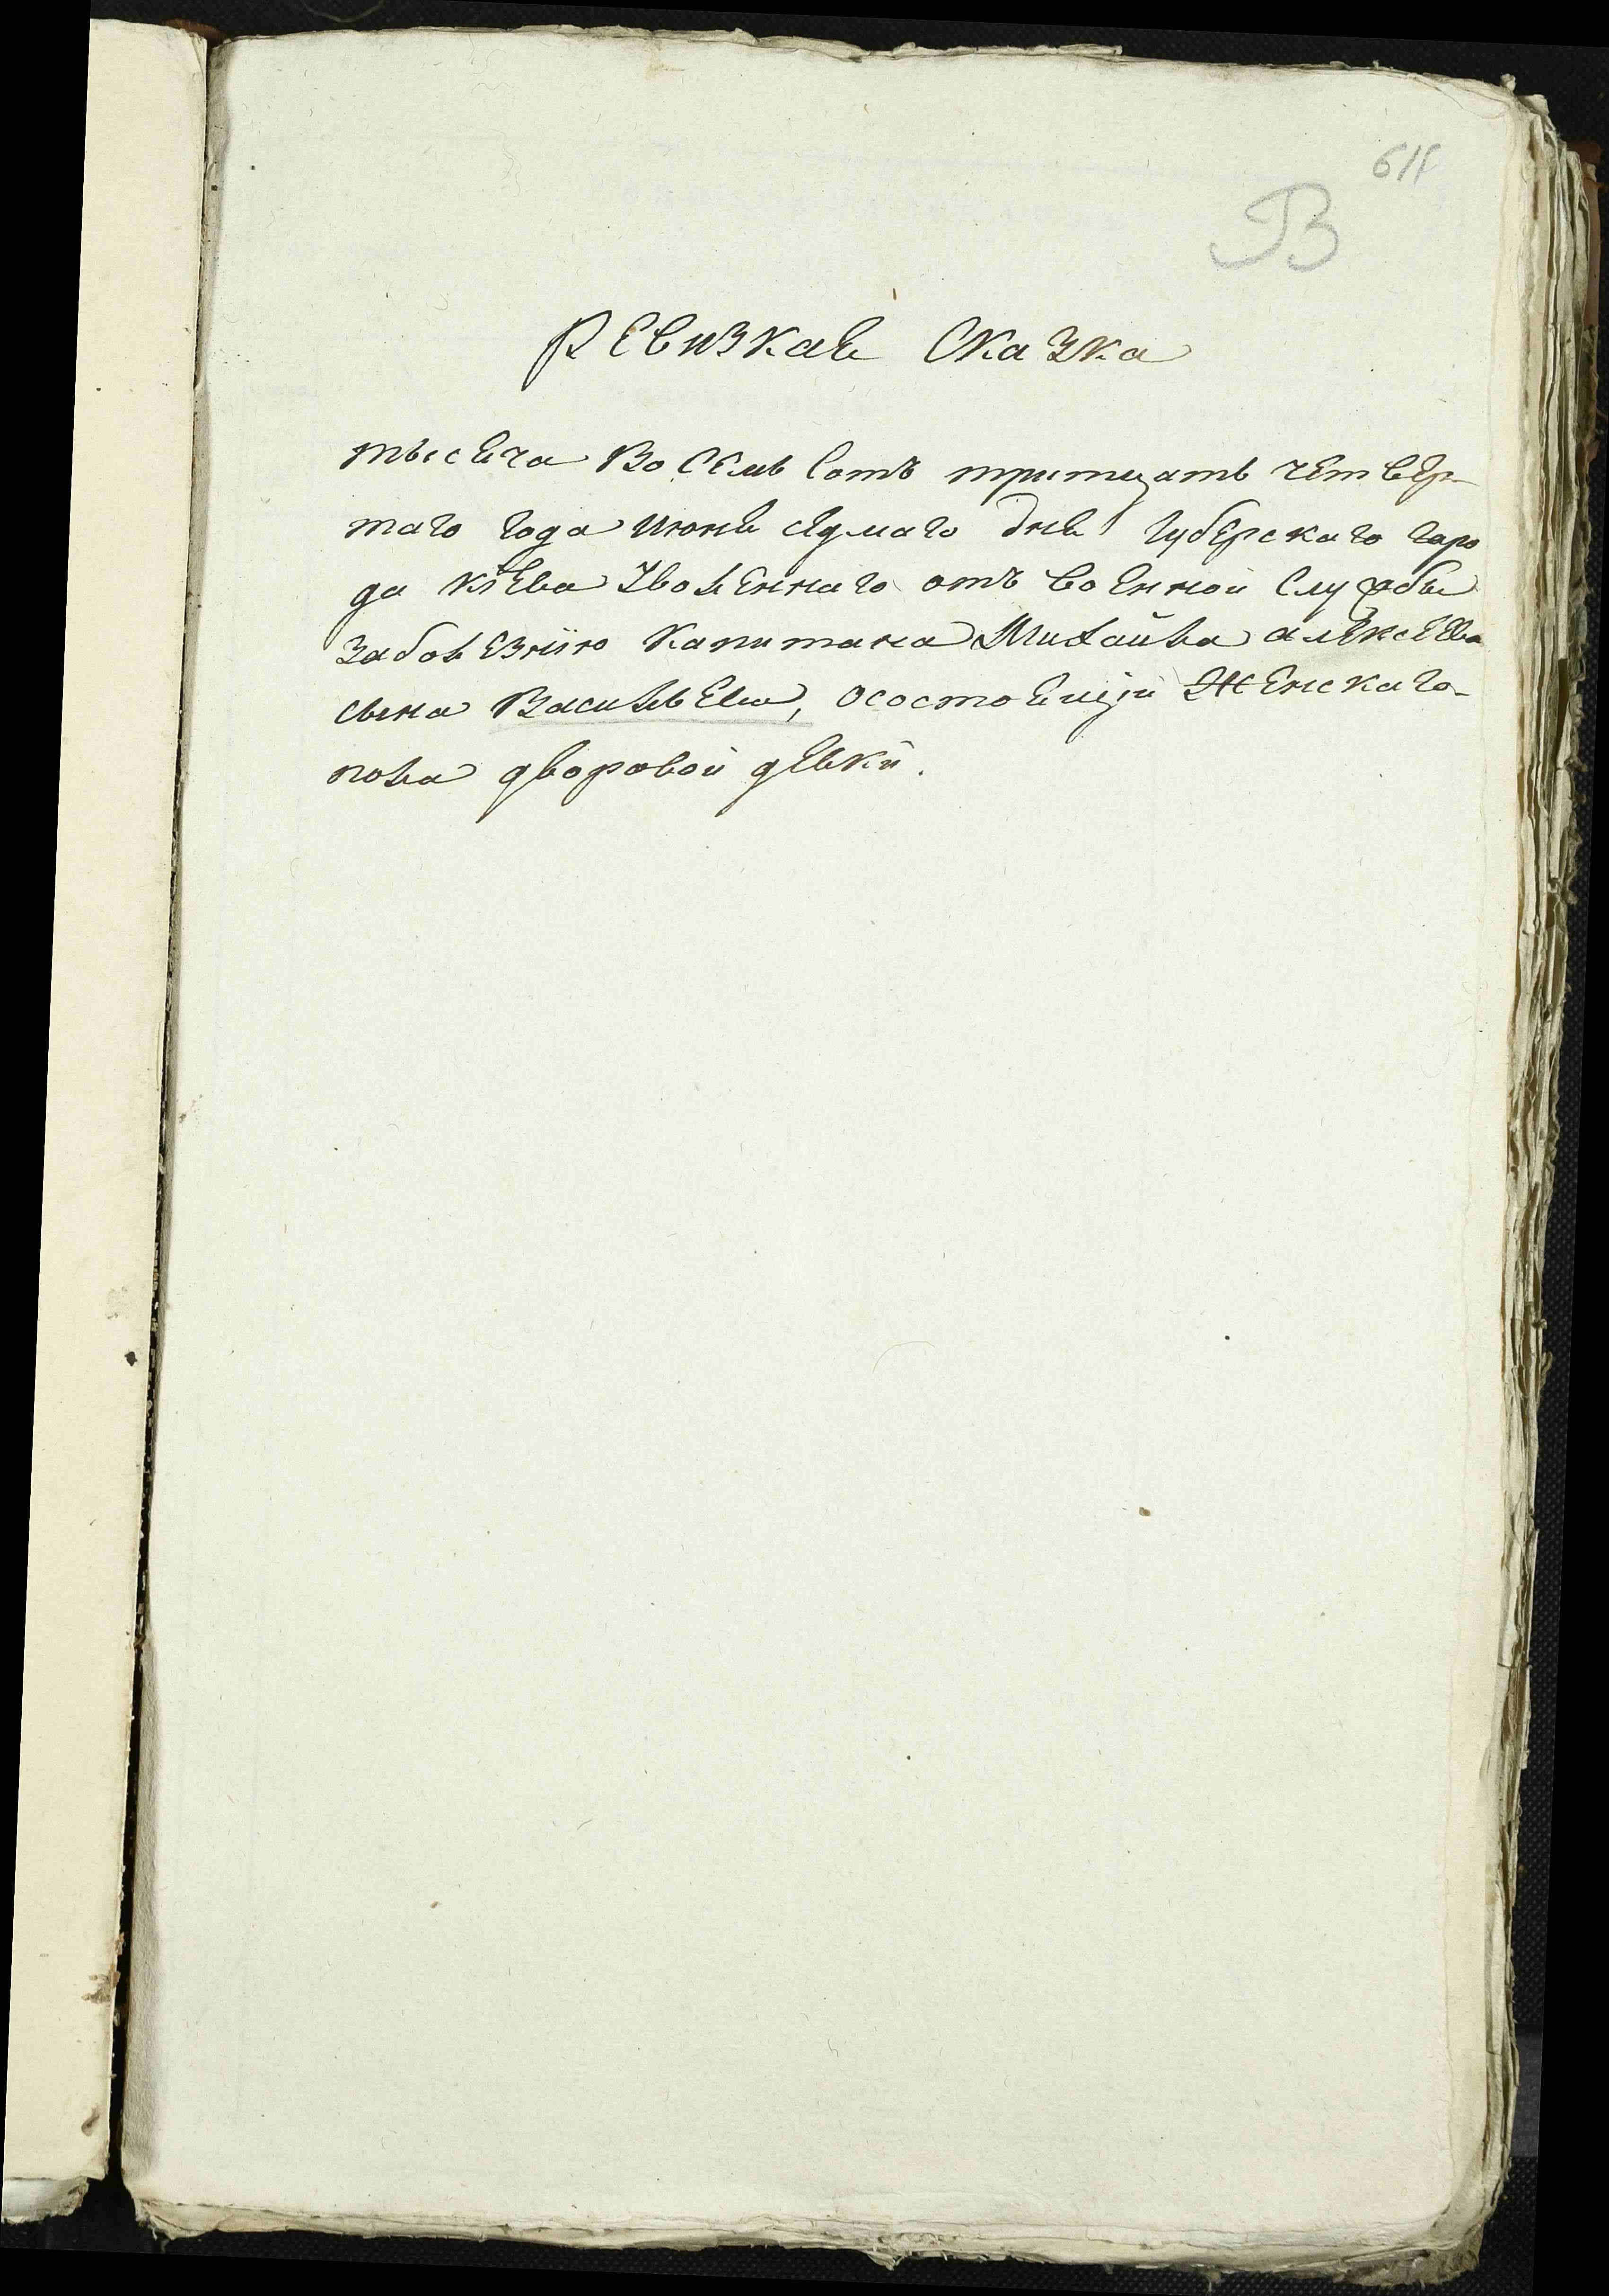 В
Ревизкая Сказка
тысяча Восемь Сотъ тритцать четвер-
таго года июня седмаго дня Губерскаго горо
да кіева Уволеннаго отъ военной Службы
за болезнию Капитана Михайла алексеева
сына Васильева, о состоящей Женскаго
пола дворовой девки.